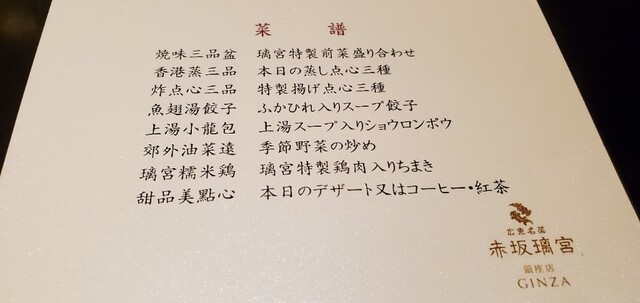 菜 譜
焼味三品盆 璃宮特製前菜盛り合わせ
香港蒸三品 本日の蒸し点心三種
炸点心三品 特製揚げ点心三種
魚翅湯餃子 ふかひれ入りスープ餃子
上湯小龍包 上湯スープ入りショウロンポウ
郊外油菜遠 季節野菜の炒め
璃宮糯米鶏 璃宮特製鶏肉入りちまき
甜品美點心 本日のデザート又はコーヒー・紅茶
広東名菜
赤坂璃宮
銀座店
GINZA